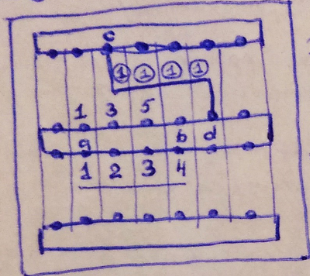 c
① ① ① ①
1 3 5
a b d
1 2 3 4